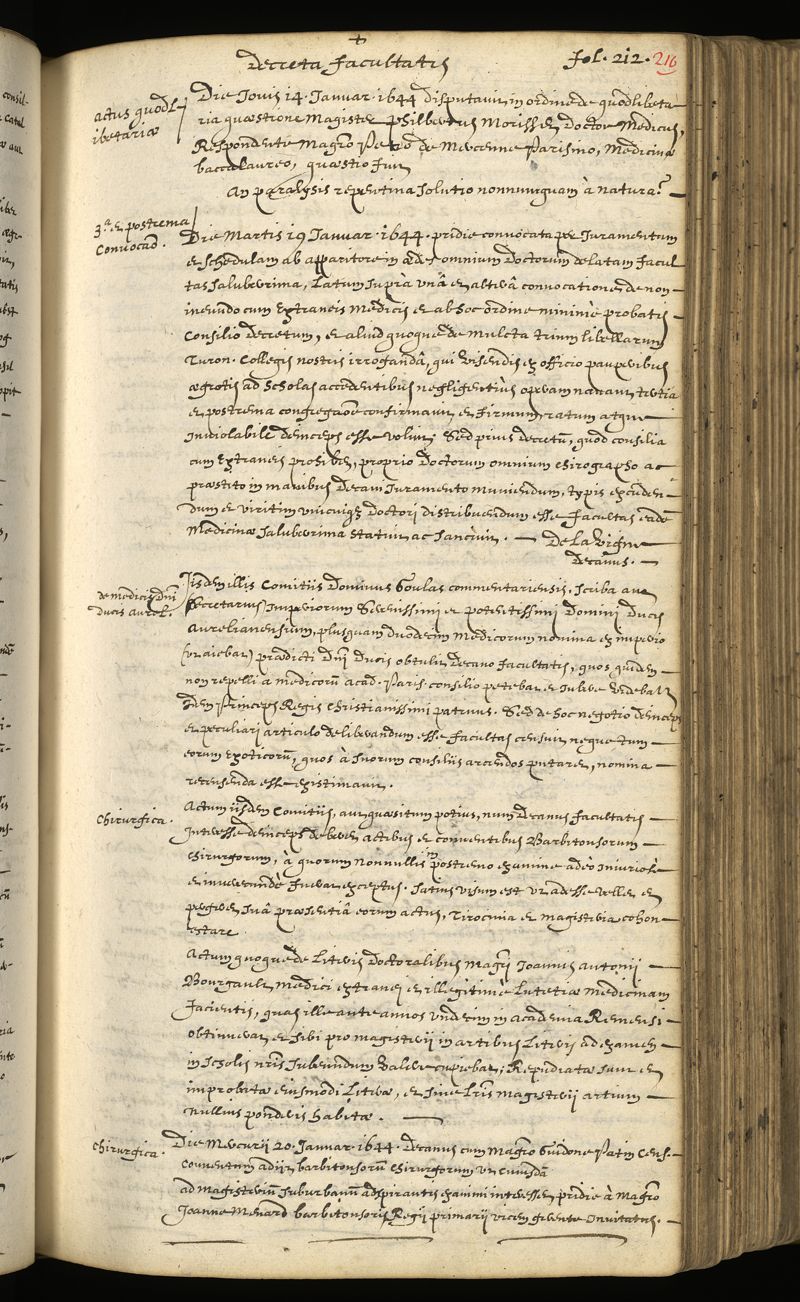 +
Decreta facultatis
fol. 212. 216
actus quodl-
ibetariae
Die Jovis 14. Januar. 1644 disputavit in ordine de quodlibeta-
ria quaestione Magister Philbertus Morisset Doctor Medicus,
Respondente Magro Petro de Mercenne Parisino, Medicinae
baccalaureo, quaestio fuit
An paralysis repentina solutio nonnunquam à natura?
3.a et postrema
Convocaō.
Die Martis 19 Januar. 1644. pridie convocata per Juramentum
et schedulam ab apparitore in aedes omnium Doctorum delatam facul
tas saluberrima, Latum suprà unâ et alterâ convocatione de non
ineundo cum Extraneis Medicis et ab hoc ordine minimè probatis
Consilio decretum, et aliud quoque de mulcta trium libellarum
Turon. Collegis nostris irrogandâ, qui visendis ex officio pauperibus
aegrotis ad Scholas accedentibus negligentiùs operam navant, tertia
et postrema congregaōe confirmavit et firmum, ratum atque
Inviolabile deinceps esse voluit. Sed prius decretū, quod consilia
cum Extraneis prohibet, proprio Doctorum omnium chirographo ac
praestito in manibus Decani Juramento muniendum, typis excuden-
dum et viritim unicuiq3 Doctori distribuendum esse facultas eadē
Medicinae saluberrima statuit ac sancivit. De la Vigne
decanus.
de medicis Dni
ducis Aurel.
Iisdem illis Comitiis Dominus Goulas commentariensis, scriba aut
secretarius Imperiorum Serenissimi et potentissimi Domini Ducis
Aurelianensium, plusquam duodecim medicorum nomina ex imperio
(ut aiebat) praedicti Dni Ducis obtulit Decano facultatis, quos quidem
non repelli a medicorū acad. Paris. consilio petebat et Jubere
Idem Princeps Regis Christianissimi patruus. Sed de hoc negotio deinceps
et peculiari articulo deliberandum esse facultas censuit neque tum
eorum Exoticorū, quos à suorum consiliis arcendos putaret, nomina
recensenda esse existimavit.
Chirurgica.
Actum iisdem Comitiis, aut quaesitum potius, num Decanus facultatis
Interesse deinceps deberet actibus et conventibus Barbitonsorum
chirurgorum, à quorum nonnullis in postremo examine adeò Iniuriosè
et inverecundè fuerat exceptus. satius visum est ut adesse vellet et
pergeret suâ praesentiâ eorum actus, Tirocinia et Magisteria cohon-
estare.
Actum quoque de Literis Doctoralibus Magri Joannis Antonii
Bourgault, Medici extranei et illegitimè Lutetiae medicinam
facientis, quas ille ante annos undecim in Academia Remensi
obtinuerat, et sibi pro magisterii in artibus Literis ad examen
in scholis nris subeundum valere cupiebat; Repudiatae sunt et
improbatae eiusmodi Literae, et sine Lris magisterii artium
nullius ponderis habitae.
Chirurgica.
Die Mercurii 20. Januar. 1644. Decanus cum Magro Guidone Patin Cens.
Conventum adiit barbitonsorū chirurgorum ut cuiusdā
ad Magisterium suburbanū adspirantis examini interesset, pridie à Magro
Joanne Menard barbitonsoris Regii primarii vicem gerente Invitatus.